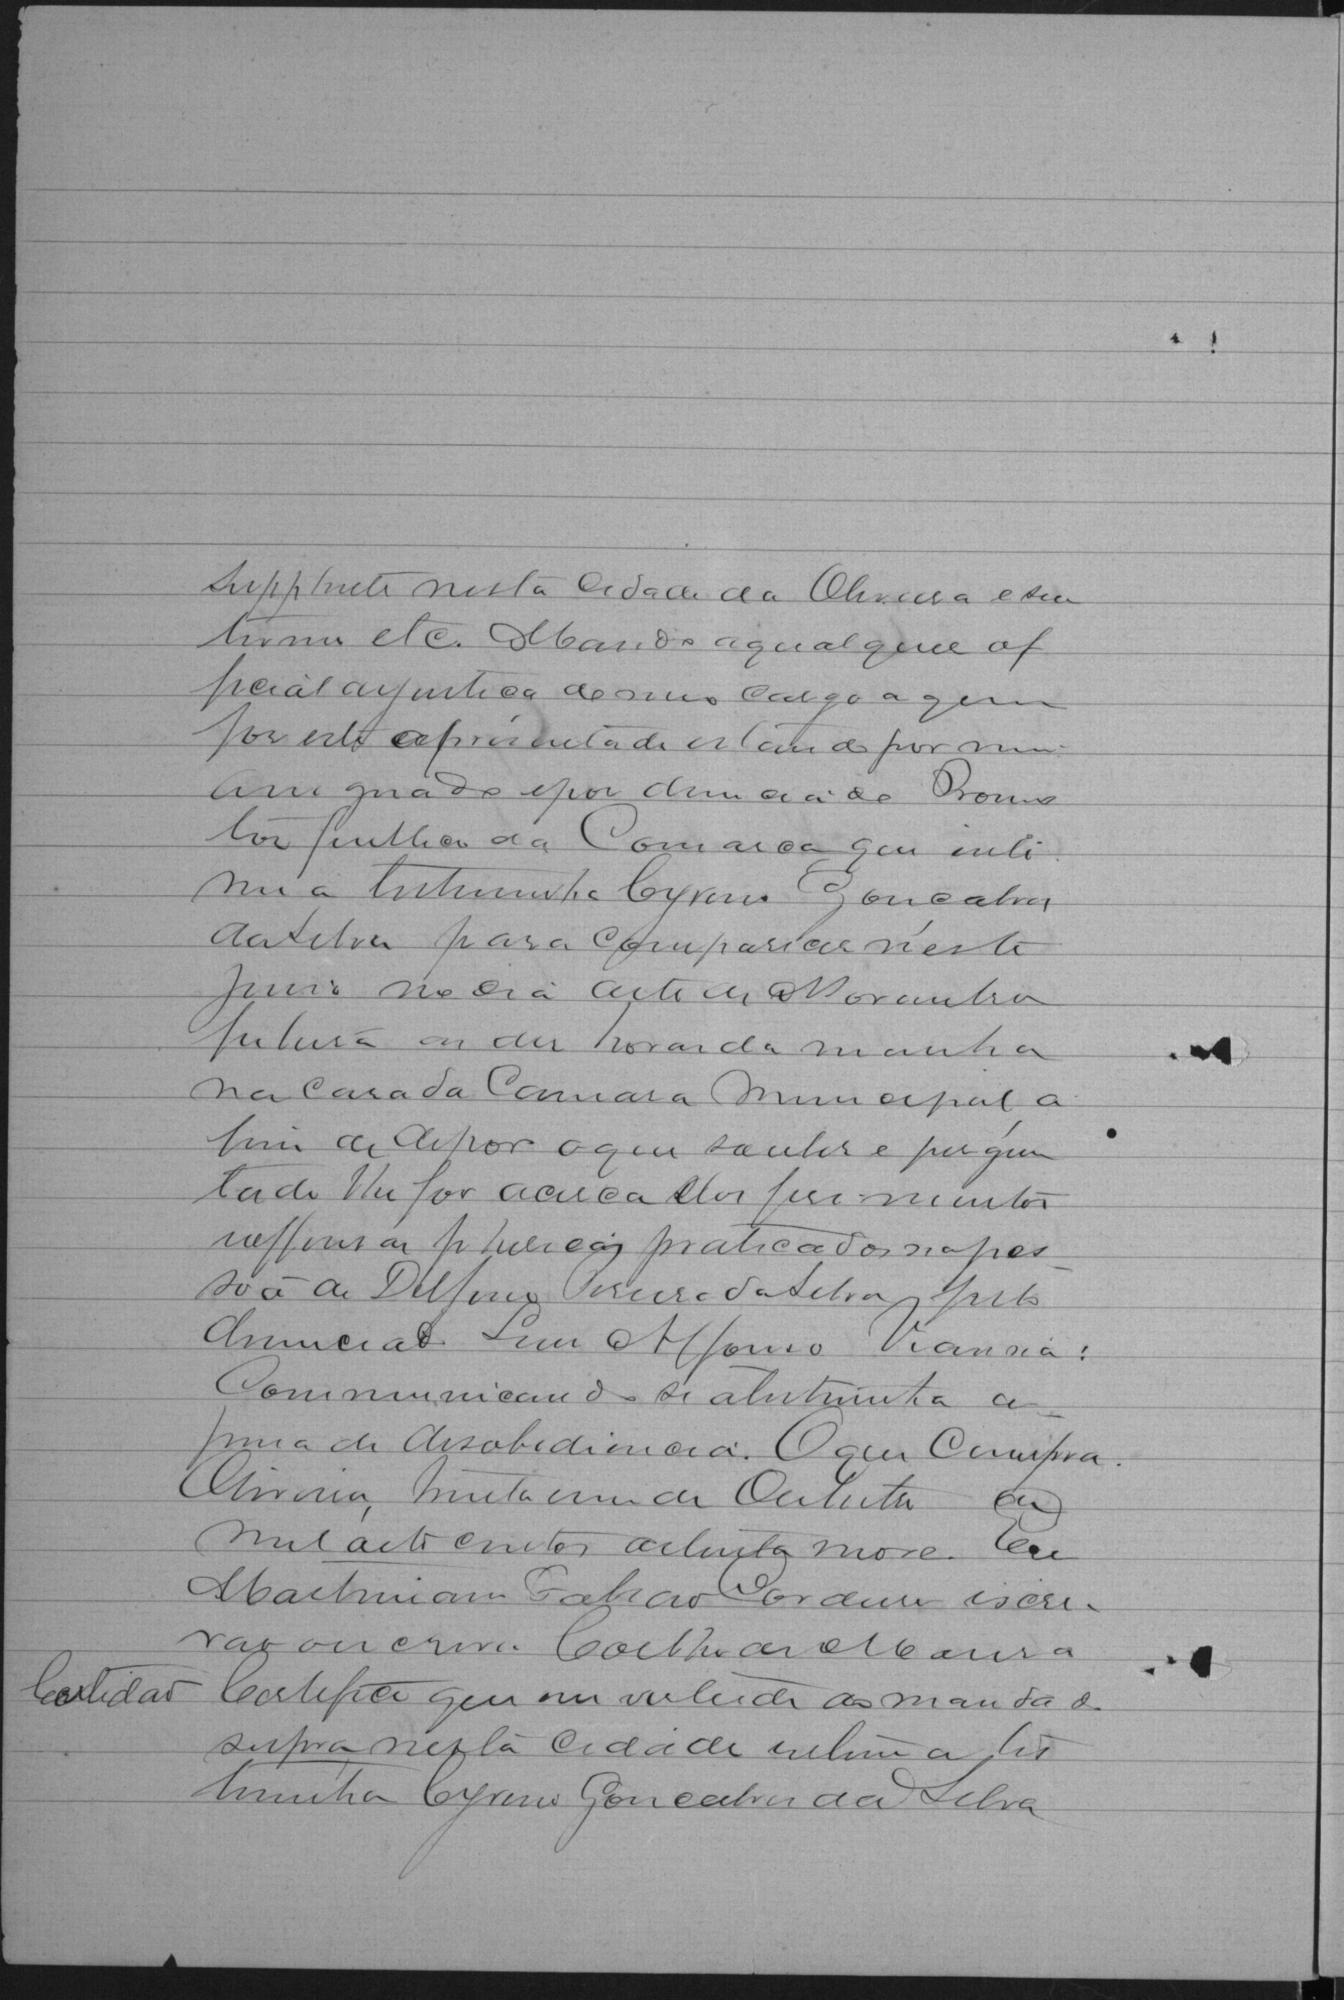 supplente nesta Cidade da Oliveira e seu
termo etc. Mando a qualquer of
ficial de justiça de meu cargo a quem
for este apresentado estando por mim
assignado e por denuncia do Promo
tor publico da Comarca que inti
me a testemunha Cyreno Gonçalves
da Silva para comparecer n'este
juizo no dia sete de Novembro
futuro as dez horas da manha
na Casa da Camara Municipal a
fim de depor o que souber e pergun
tado lhe for acerca dos ferimentos
e offensas phisicas praticados na pes-
sôa de Delfino Pereira da Silva, pelo
denunciado Luis Affonso Vianna:
Communicando se a testemunha a
pena de desobediencia. O que Cumpra.
Oliveira, trinta e um de Outubro de
mil oito centos oitenta nove. Eu
Martiniano Cardoso escri
vão o escrevi. Coelho de Moura
Certidão Certifico que em virtude do mandado
supra nesta Cidade intimei a tes
temunha Cyreno Gonçalves da Silva